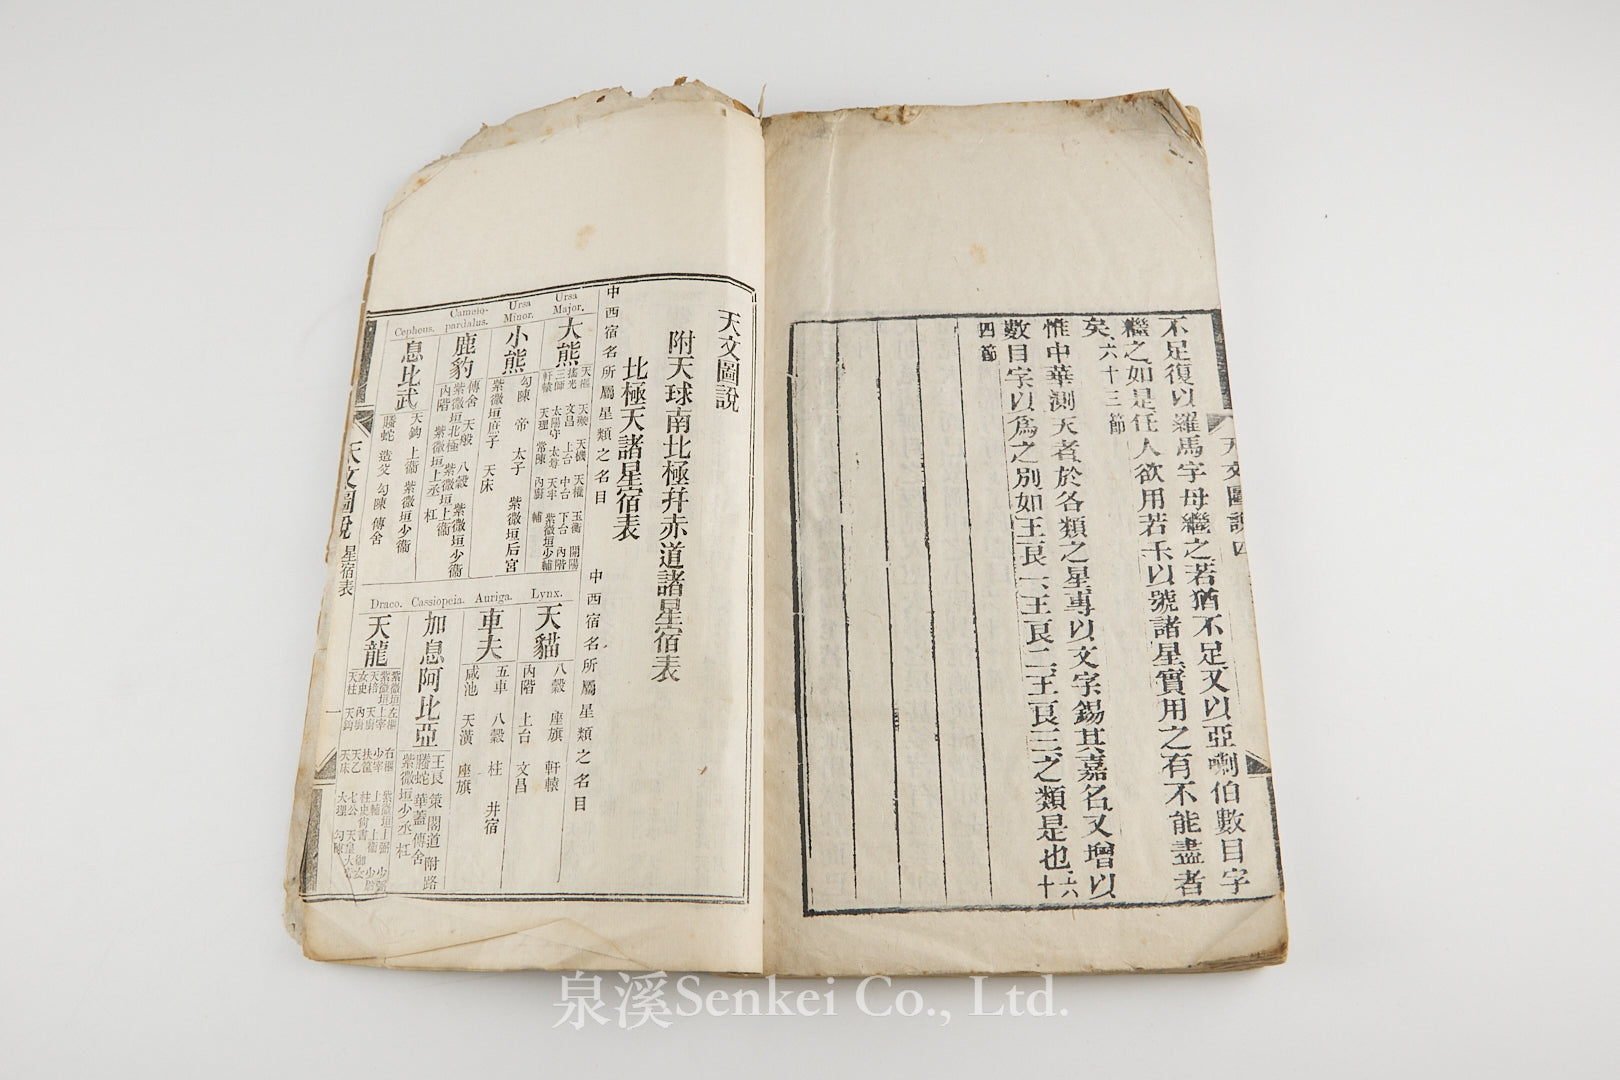 不足復以羅馬字母繼之若猶不足又以亞喇伯數目字
繼之如是任人欲用若干以號諸星實用之有不能盡者
矣六十三節
惟中華測天者於各類之星專以文字錫其嘉名又增以
數目字以爲之別如王良一王良二王良三之類是也六十
四節
天文圖說四
天文圖說
附天球南北極幷赤道諸星宿表
北極天諸星宿表
中西宿名所屬星類之名目
中西宿名所屬星類之名目
Ursa Major.
大熊
天樞 天璇 天機 天權 玉衡 開陽
搖光 文昌 上台 中台 下台 內階
三師 太陽守 太尊 天牢 紫微垣少輔
軒轅 天理 常陳 內廚 輔
Ursa Minor.
小熊
勾陳 帝 太子 紫微垣后宮
紫微垣庶子 天床
Camelo-pardalus.
鹿豹
傳舍 天般 八穀 紫微垣少衞
紫微垣北極 紫微垣上衞
內階 紫微垣上丞 杠
Cepheus.
息比武
天鈎 上衞 紫微垣少衞
螣蛇 造父 勾陳 傳舍
Lynx.
天貓
八穀 座旗 軒轅
內階 上台 文昌
Auriga.
車夫
五車 八穀 柱 井宿
咸池 天潢 座旗
Cassiopeia.
加息阿比亞
王良 策 閣道 附路
螣蛇 華蓋 傳舍
紫微垣少丞 杠
Draco.
天龍
紫微垣左樞 右樞 紫微垣上弼 少弼
紫微垣上宰 少宰 上輔 上衞 少尉
天棓 天廚 扶筐 柱史 尚書 御女
女史 內廚 天乙 七公 天皇大帝
天柱 天鈎 天床 大理 勾陳
天文圖說 星宿表
一
泉溪Senkei Co., Ltd.